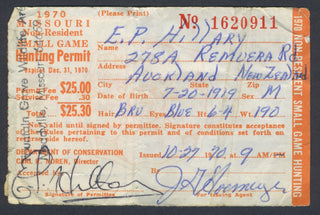 1970
MISSOURI
Non-Resident
SMALL GAME
Hunting Permit
Expires Dec. 31, 1970
(Please Print)
No 1620911
E.P. Hillary
278A Remuera Rd
Auckland New Zealand
City State
Date of Birth 7-20-1919 Sex M
$25.00
Service Fee .30
Total $25.30
Hair Bru Blue 6-4 190
Not valid until signed by permittee. Signature constitutes acceptance
of statutes pertaining to this permit and of conditions set forth on
reverse side.
DEPARTMENT OF CONSERVATION
Director
Issued 10-27 1970, at 9 AM/PM
E P Hillary
Signature of Permittee
1970 NON-RESIDENT SMALL GAME HUNTING